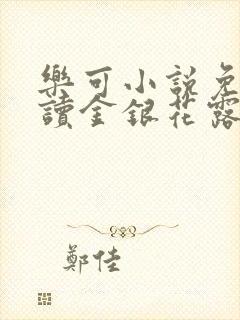 樂可小說免
讀金銀花露
鄭佳